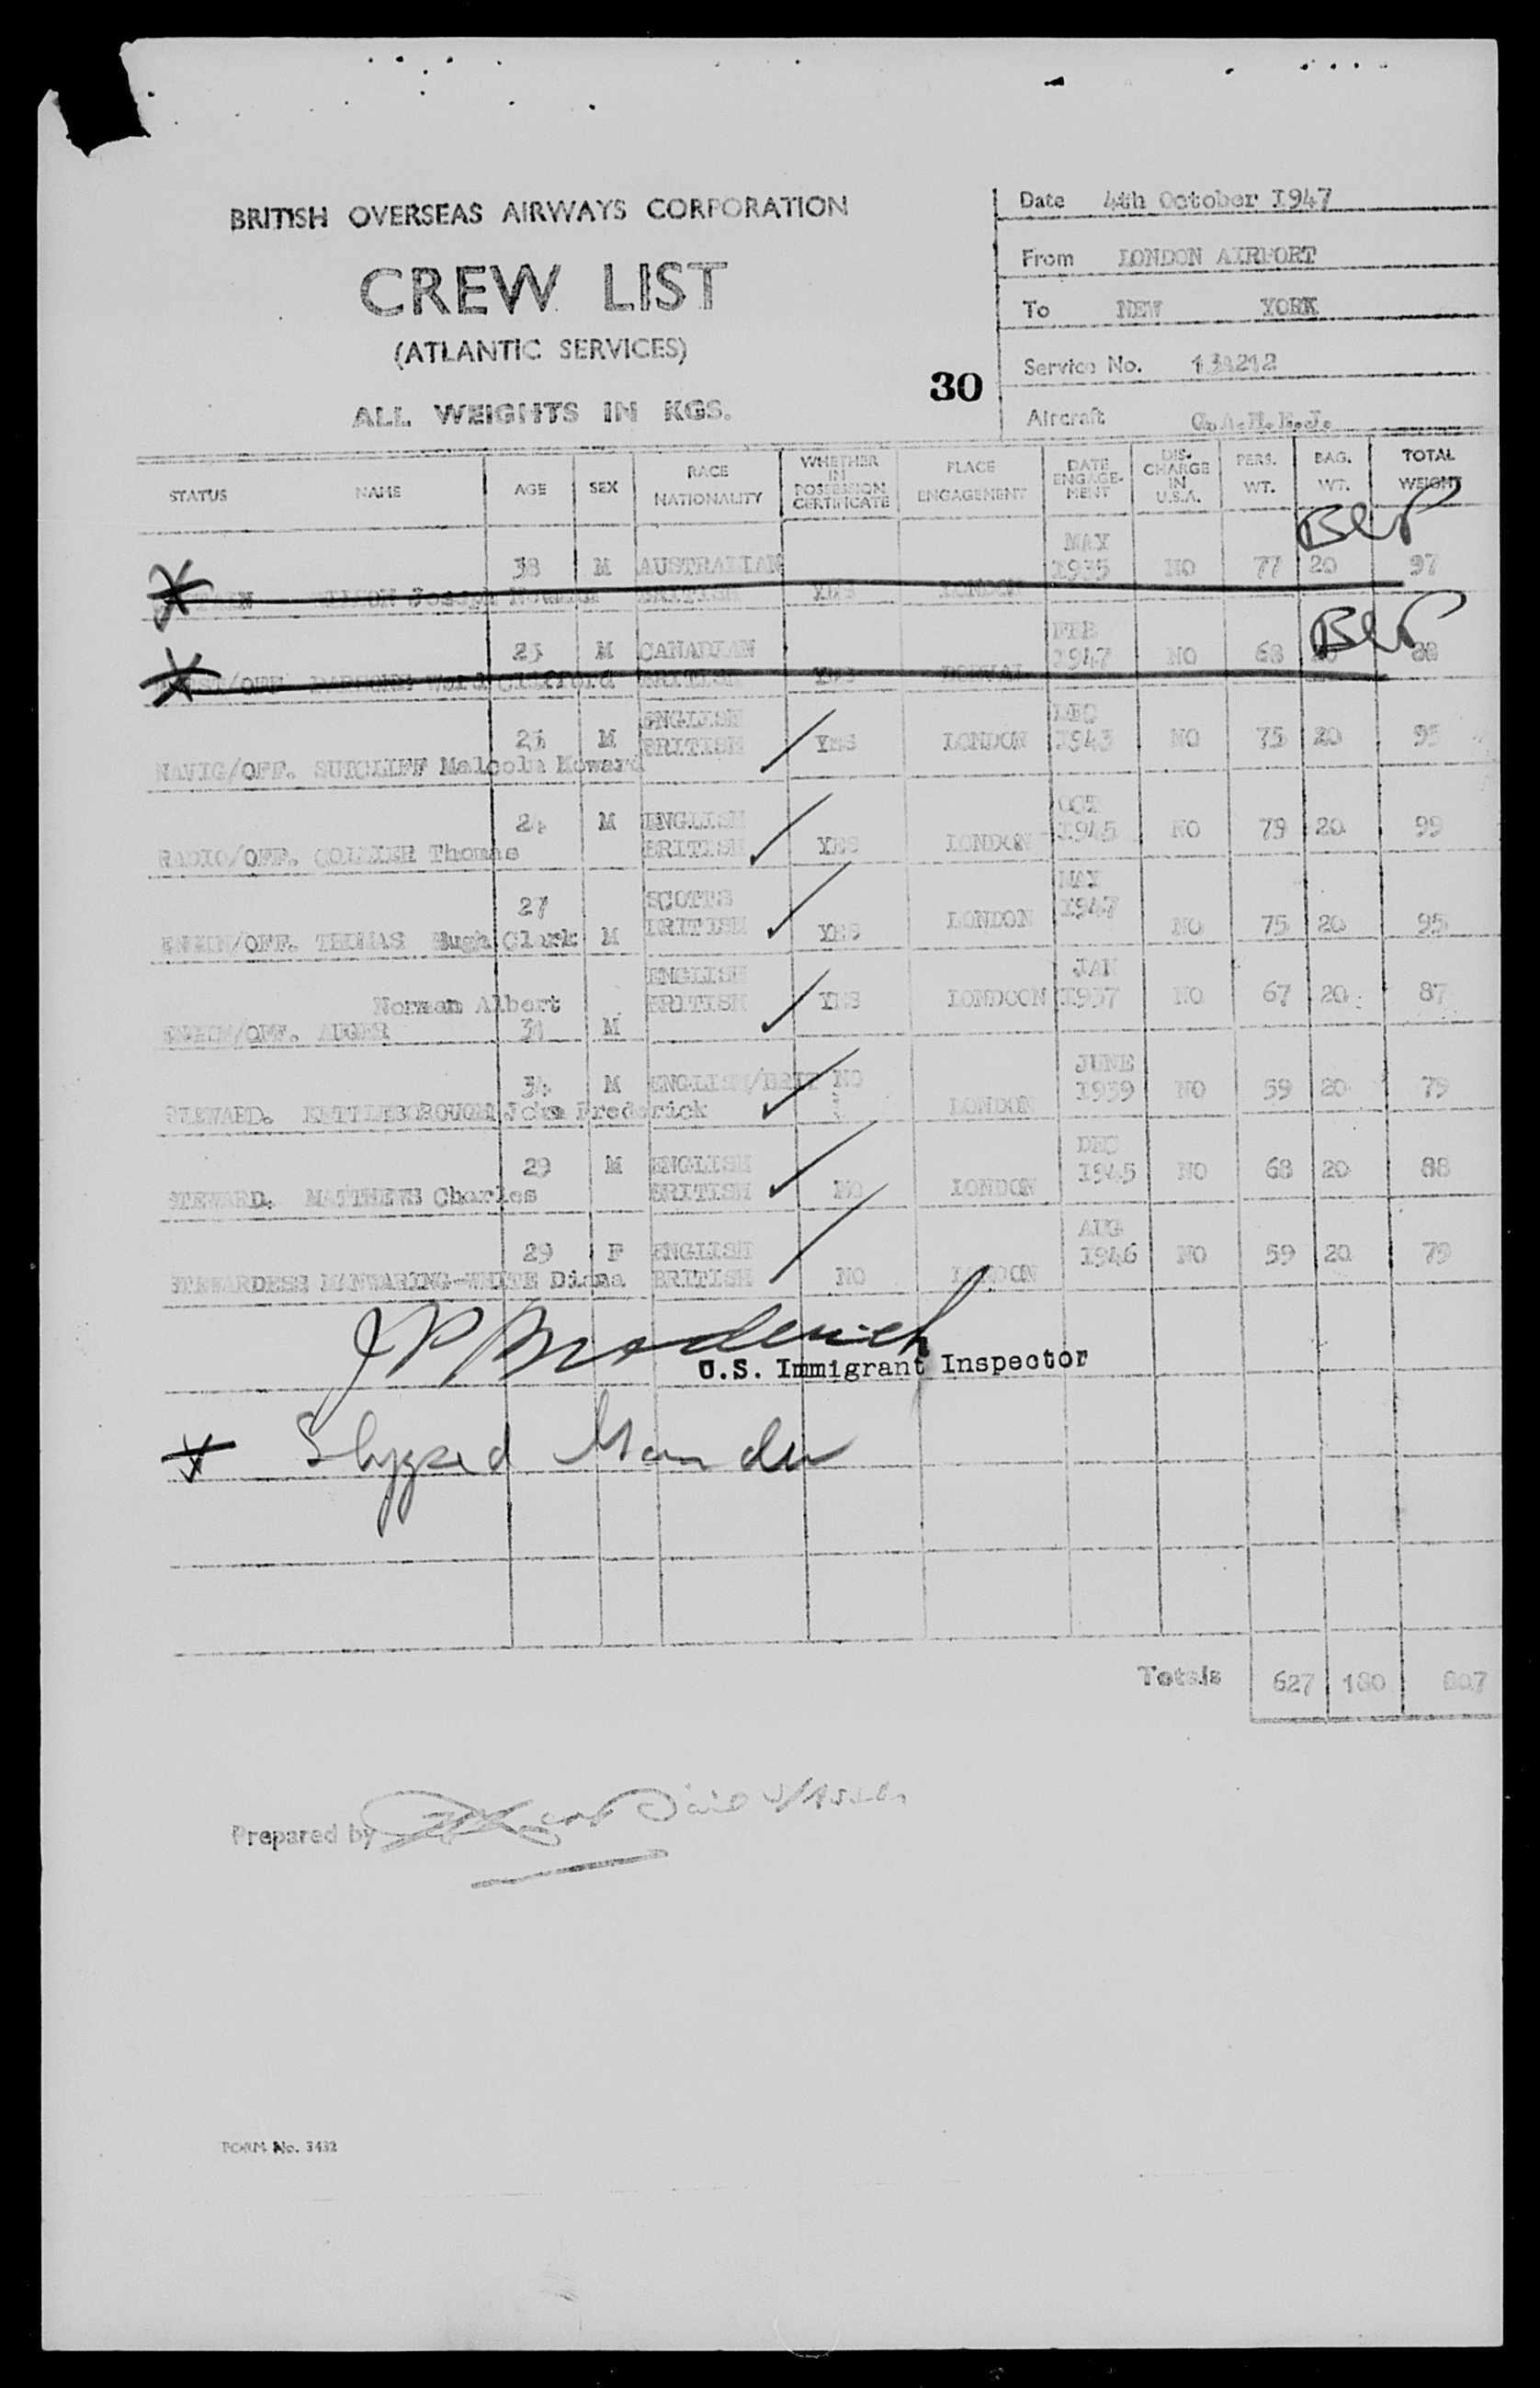 BRITISH OVERSEAS AIRWAYS CORPORATION
CREW LIST
(ATLANTIC SERVICES)
ALL WEIGHTS IN KGS.
30
Date 4th October 1947
From LONDON AIRPORT
To NEW YORK
Service No.
Aircraft G.A.H.E.J.
STATUS NAME AGE SEX RACE NATIONALITY WHETHER IN POSSESSION CERTIFICATE PLACE ENGAGEMENT DATE ENGAGE-MENT DIS-CHARGE IN U.S.A. PERS. WT. BAG. WT. TOTAL WEIGHT
Joseph 38 M AUSTRALIAN BRITISH YES LONDON MAY 1935 NO 77 20 97
Ward Clifford M CANADIAN BRITISH YES DORVAL FEB 1947 NO 68 88
NAVIG/OFF. SUTCLIFF Malcolm Howard M ENGLISH BRITISH YES LONDON DEC 1943 NO 75 20 95
RADIO/OFF. COLLIER Thomas 24 M ENGLISH BRITISH YES LONDON OCT 1945 NO 79 20 99
ENGIN/OFF. THOMAS Hugh Clark 27 M SCOTTS BRITISH YES LONDON MAY 1947 NO 75 20 95
ENGIN/OFF. AUGER Norman Albert M ENGLISH BRITISH YES LONDOON JAN 1937 NO 67 20 87
STEWARD. KETTLEBOROUGH John Frederick 34 M ENGLISH/BRIT NO LONDON JUNE 1939 NO 59 20 79
STEWARD. MATTHEWS Charles 29 M ENGLISH BRITISH NO LONDON DEC 1945 NO 68 20 88
STEWARDESS MANWARING-WHITE Diana 29 F ENGLISH BRITISH NO LONDON AUG 1946 NO 59 20 79
U.S. Immigrant Inspector
Totals 627 180 807
Prepared by
FORM No. 3432